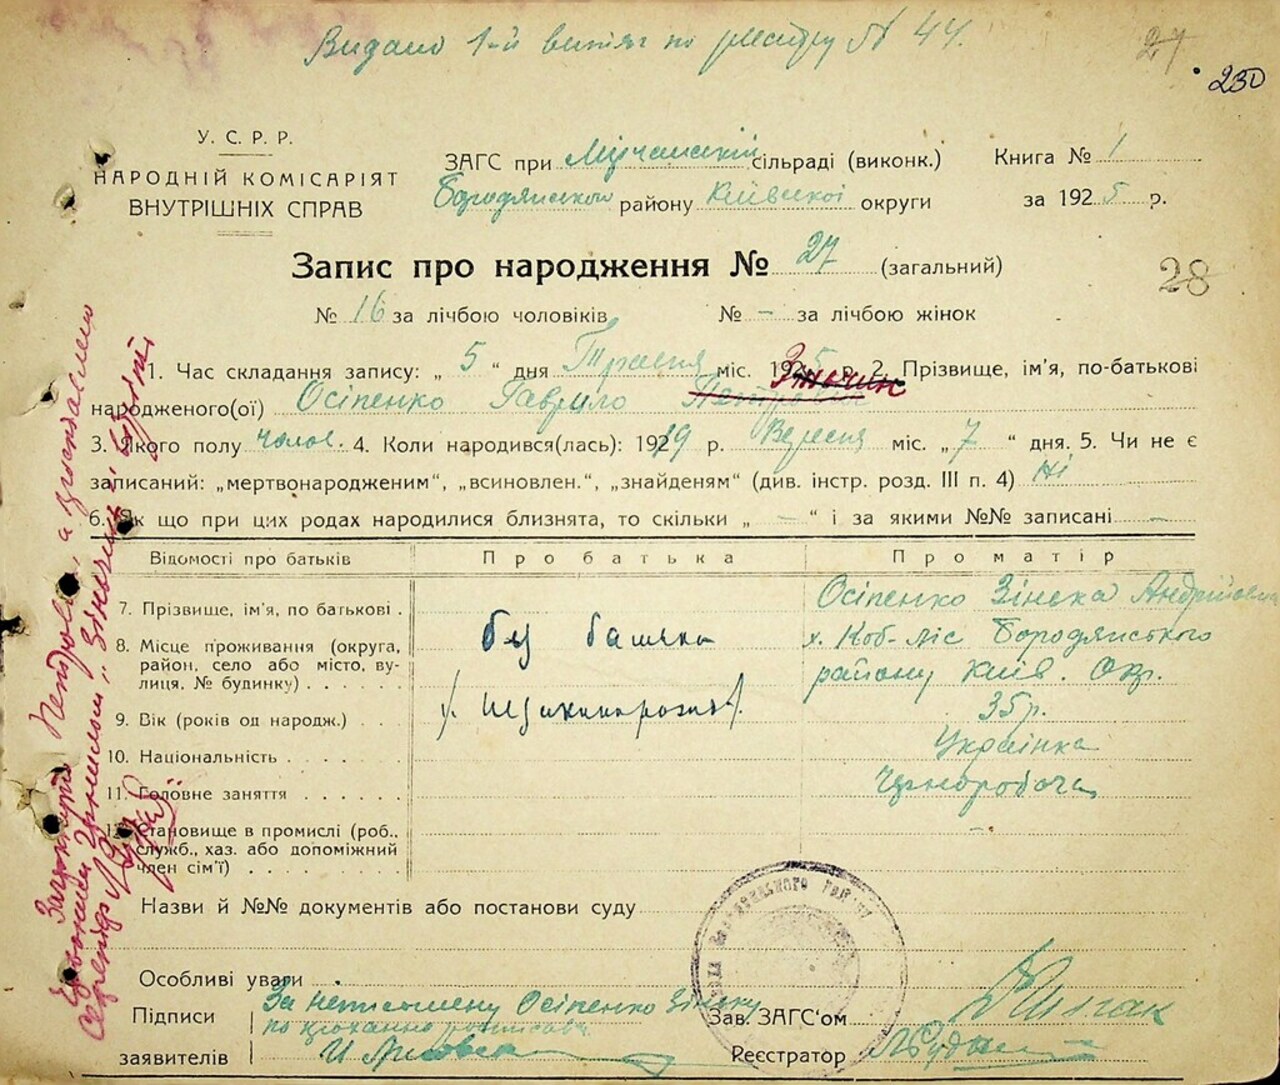 Видано 1-й витяг по реєстру № 44.
27
230
У. С. Р. Р.
НАРОДНІЙ КОМІСАРІЯТ
ВНУТРІШНІХ СПРАВ
ЗАГС при Мирчанській сільраді (виконк.) Книга № 1
Бородянського району Київської округи за 1925 р.
Запис про народження № 27 (загальний)
28
№ 16 за лічбою чоловіків № – за лічбою жінок
1. Час складання запису: „ 5 “ дня Травня міс. 1925 р. 2. Прізвище, ім'я, по-батькові
народженого(ої) Осіпенко Гаврило Петрович Зіньчин
3. Якого полу чолов. 4. Коли народився(лась): 1919 р. Вересня міс. „ 7 “ дня. 5. Чи не є
записаний: „мертвонародженим“, „всиновлен.“, „знайденям“ (див. інстр. розд. III п. 4) Ні
6. Як що при цих родах народилися близнята, то скільки „ – “ і за якими №№ записані –
Відомості про батьків Про батька Про матір
7. Прізвище, ім'я, по батькові . Осіпенко Зінька Андріївна
8. Місце проживання (округа, район, село або місто, вулиця, № будинку) . . . . . без батька х. Коб-ліс Бородянсткого
району Київ. Окр.
9. Вік (років од народж.) . . . 35 р.
10. Національність . . . . . . Українка
11. Головне заняття . . . . . . Чорноробоча
12. Становище в промислі (роб., –
служб., хаз. або допоміжний
член сім'ї) . . . . . . . .
Назви й №№ документів або постанови суду
Особливі уваги
Підписи За неписмену Осіпенко Зіньку
по проханню росписався
заявителів
Зав. ЗАГС'ом
Реєстратор